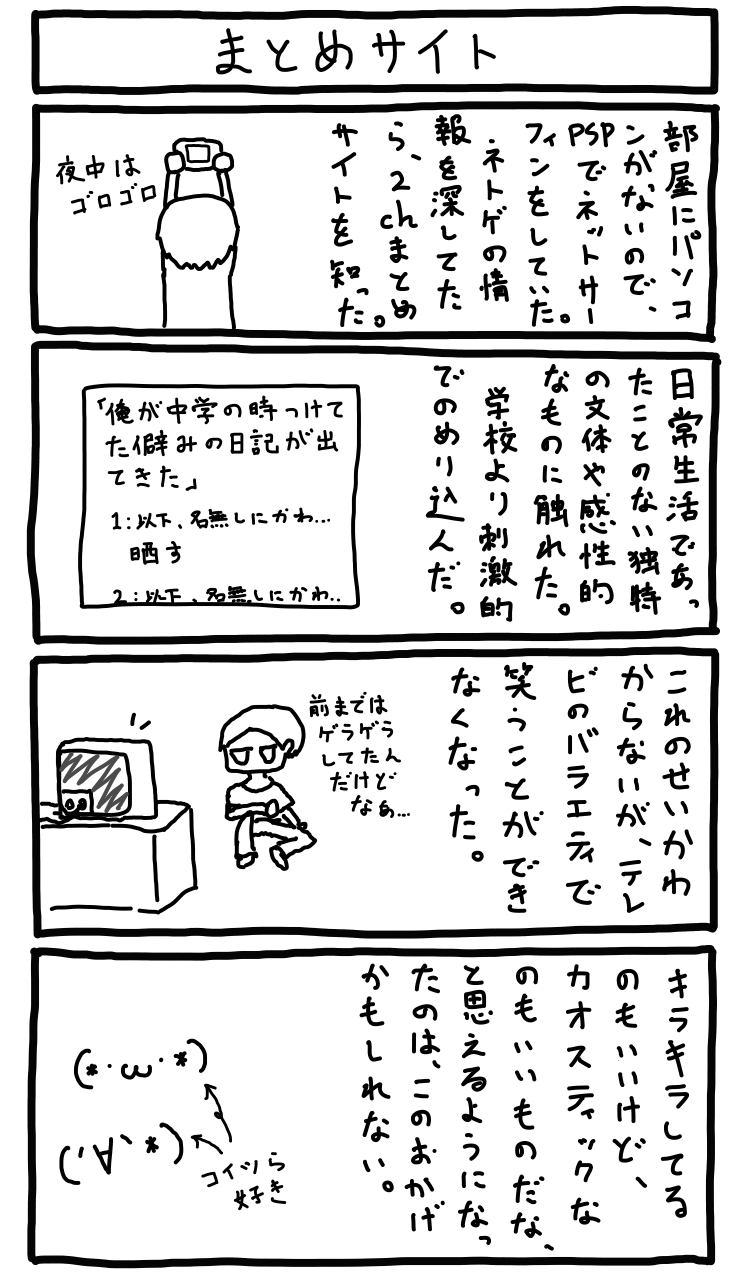 まとめサイト
部屋にパソコ
ンがないので、
PSPでネットサー
フィンをしていた。
ネトゲの情
報を深してた
ら、2chまとめ
サイトを知った。
夜中は
ゴロゴロ
日常生活であっ
たことのない独特
の文体や感性的
なものに触れた。
学校より刺激的
でのめり込んだ。
「俺が中学の時つけて
た僻みの日記が出
てきた」
1:以下、名無しにかわ...
晒す
2:以下、名無しにかわ..
これのせいかわ
からないが、テレ
ビのバラエティで
笑うことができ
なくなった。
前までは
ゲラゲラ
してたん
だけど
なぁ...
キラキラしてる
のもいいけど、
カオスティックな
のもいいものだな、
と思えるようになっ
たのは、このおかげ
かもしれない。
(*・ω・*)
('∀`*)
コイツら
好き